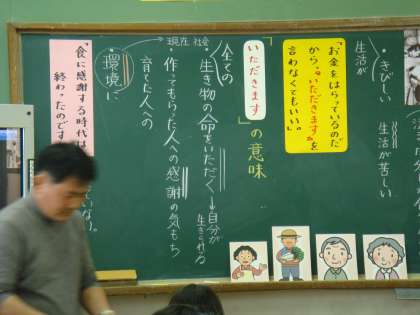 生活が
・きびしい
生活が苦しい
「お金をはらっているのだ
から、"いただきます"を
言わなくてもいい。」
「いただきます」の意味
全ての
・生き物の命をいただく→自分が
生きられる
・作ってもらった人への感謝の気もち
育てた人への
現在 社会
・環境に
「食に感謝する時代は
終わったのです